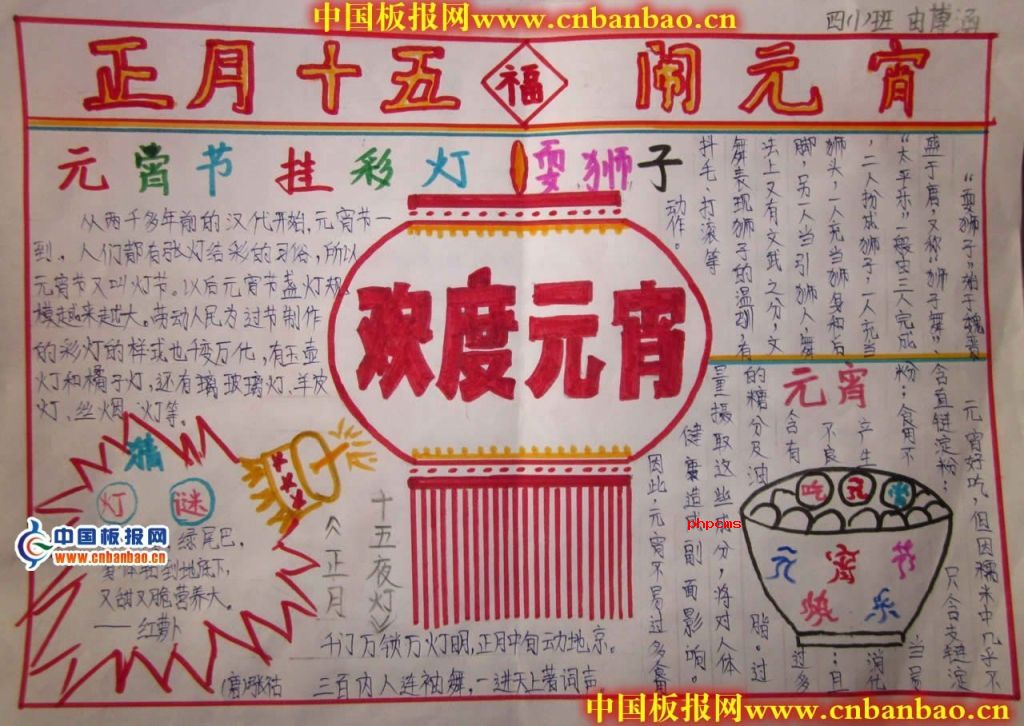 中国板报网www.cnbanbao.cn
四(1)班
正月十五 福 闹元宵
元宵节挂彩灯
从两千多年前的汉代开始,元宵节一
到,人们都有张灯结彩的习俗,所以
元宵节又叫灯节。以后元宵节盏灯规
模越来越大。劳动人民为过节制作
的彩灯的样式也千变万化,有玉壶
灯和橘子灯,还有璃玻璃灯、羊皮
灯、丝烟、灯等。
欢度元宵
耍狮子
“太平乐”一般由三人完成
,二人扮成狮子,一人充当
狮头,一人充当狮身和后
脚,另一人当引狮人,舞
法上又有文武之分,文
舞表现狮子的温驯,有
抖毛、打滚等
动作。
元宵
元宵好吃,但因糯米中几乎不
含直链淀粉,只含支链淀
粉:食用不当易
产生消化
不良:且
含有过多
的糖分及油脂。过
量摄取这些成分,将对人体
健康造成副面影响。
因此元宵不易过多食
猜
灯谜
绿尾巴,
身体钻到地底下,
又甜又脆营养大。
——红萝卜
中国板报网
www.cnbanbao.cn
《正月十五夜灯》
千门万锁万灯明,正月中旬动地京。
三百内人连袖舞,一进天上著词声
(唐)张祜
phpcms
吃元宵
元宵节
快乐
中国板报网www.cnbanbao.cn